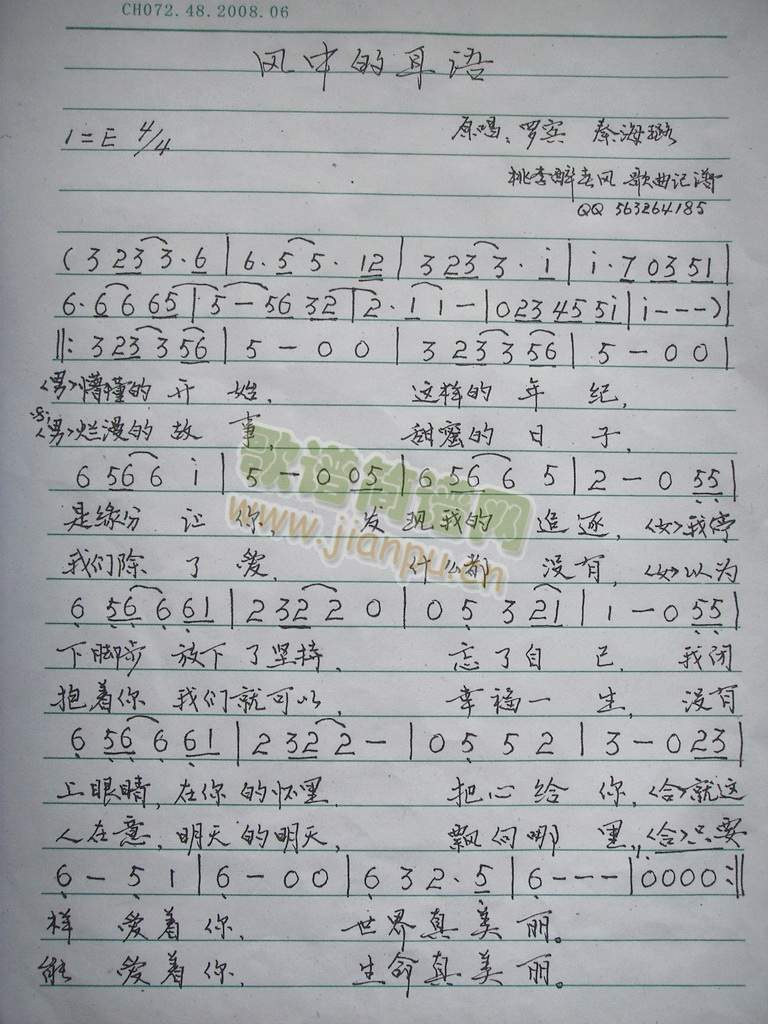 CH072.48.2008.06
风中的耳语
1=E 4/4 原唱：罗宾 秦海璐
桃李醉春风 歌曲记谱
QQ 563264185
(3 23 3·6 | 6·5 5·12 | 3 23 3·i | i·7 0351 |
6·6 6 65 | 5 - 56 32 | 2·1 1 - | 023 45 5i | i - - -)
||: 3 23 3 56 | 5 - 0 0 | 3 23 3 56 | 5 - 0 0 |
<男>懵懂的 开 始， 这样的 年 纪，
<男>烂漫的 故 事， 甜蜜的 日 子，
6 56 6 i | 5 - 0 05 | 6 56 6 5 | 2 - 0 55 |
是缘份 让 你， 发 现我的 追 逐，<女>我停
我们除 了 爱， 什么都 没 有，<女>以为
6 56 6 61 | 2 32 2 0 | 0 5 3 21 | 1 - 0 55 |
下脚步 放下了坚持， 忘了自 己， 我闭
抱着你 我们就可以， 幸福一 生， 没有
6 56 6 61 | 2 32 2 - | 0 5 5 2 | 3 - 0 23 |
上眼睛，在你的怀里， 把心给 你，<合>就这
人在意，明天的明天， 飘向哪 里，<合>只要
6 - 5 1 | 6 - 0 0 | 6 3 2·5 | 6 - - - | 0 0 0 0 :||
样 爱着你， 世界真美 丽。
能 爱着你， 生命真美 丽。
歌谱简谱网
www.jianpu.cn